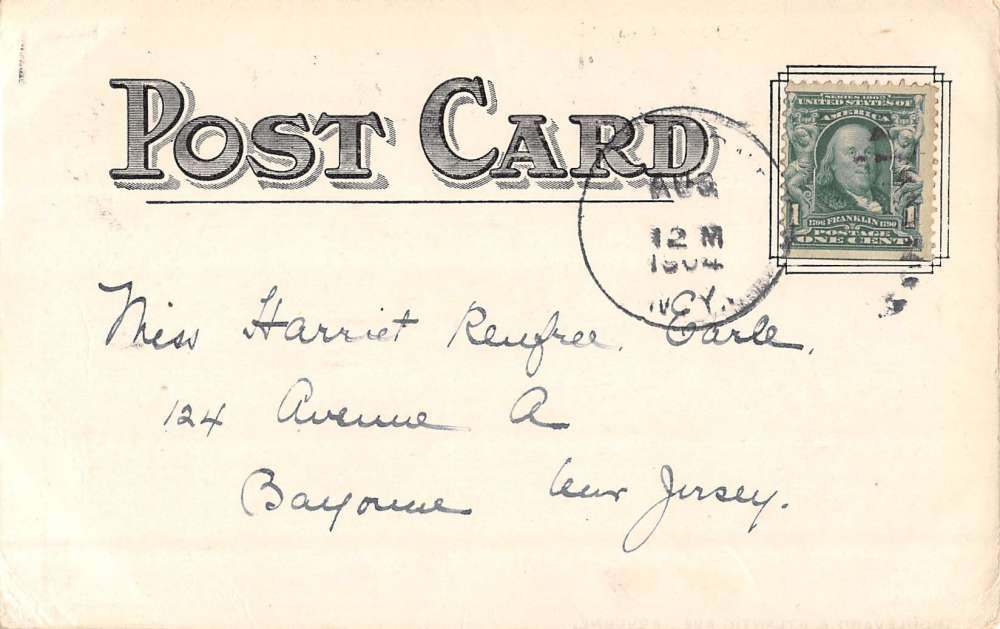 POST CARD
SERIES 1902
UNITED STATES OF
AMERICA
1 1
1706 FRANKLIN 1790
POSTAGE
ONE CENT
AUG
12 M
1904
N.Y.
Miss Harriet Renfree Earle,
124 Avenue A
Bayonne New Jersey.